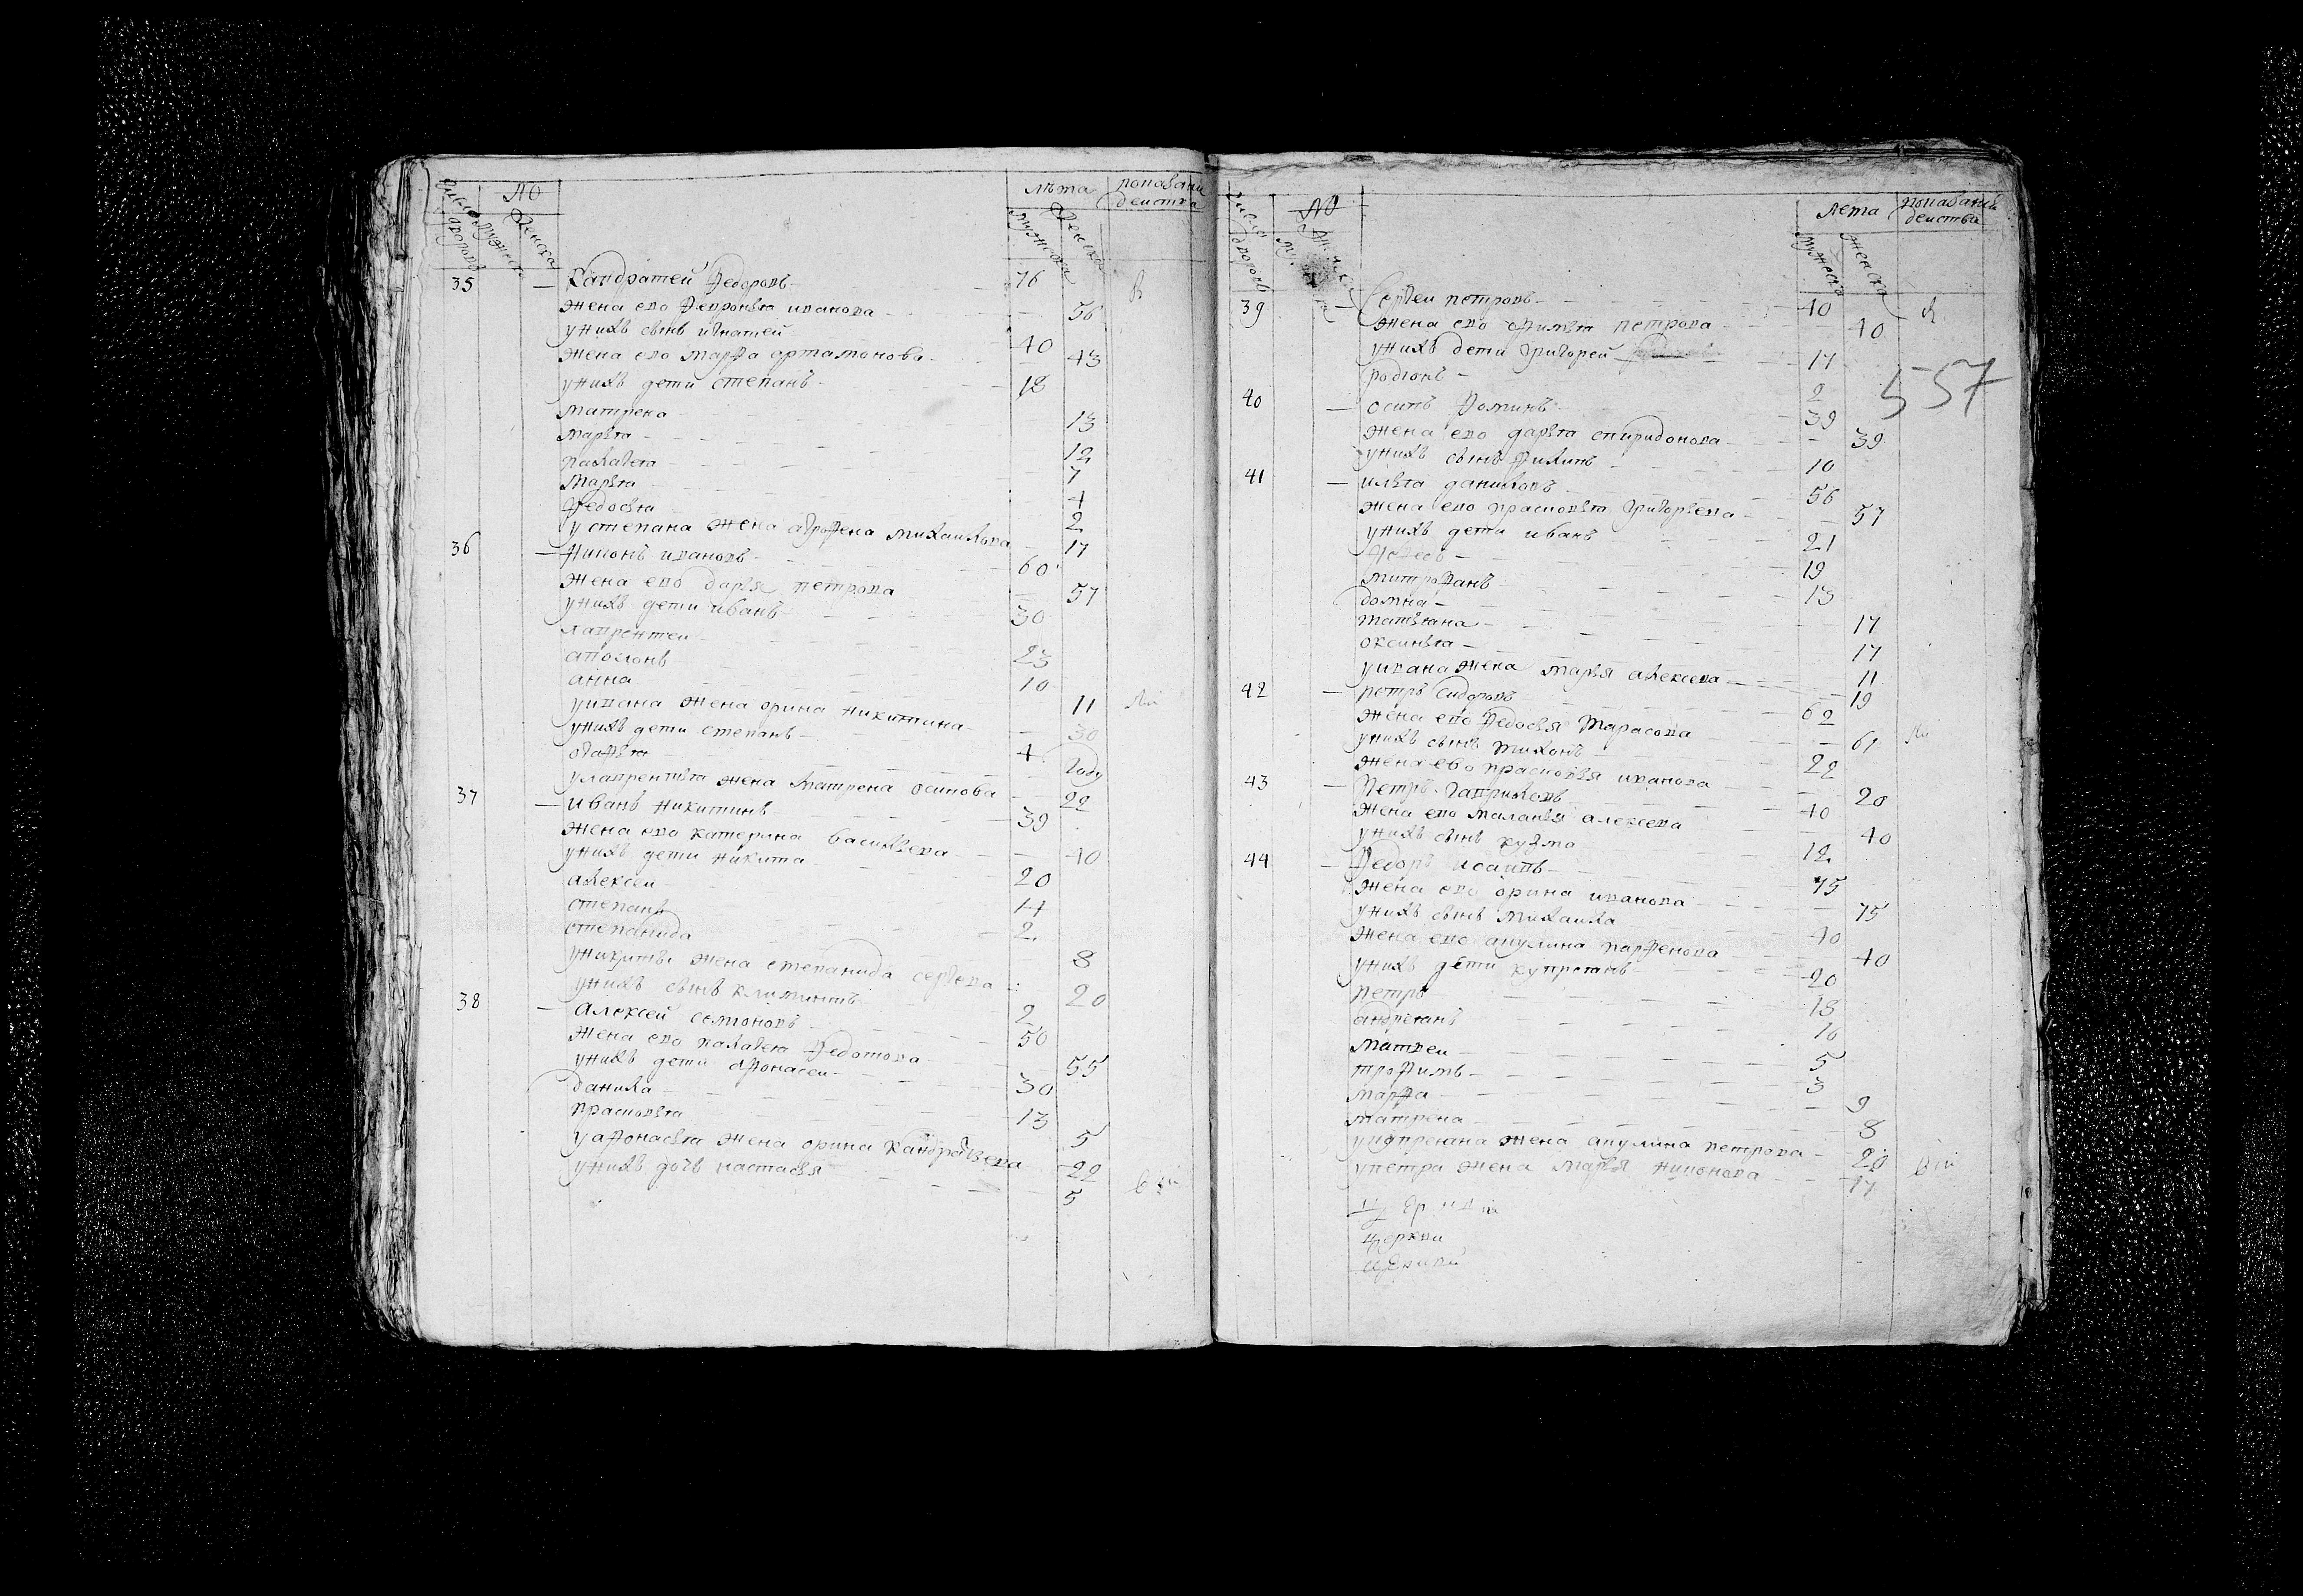 число дворовъ
№
мужеска
женска
лѣта
мужеска
женска
показани действа
35 — Кандратей Федоровъ 76
жена ево Февронья иванова 56
у нихъ сынъ игнатей 40
жена ево марфа артамонова 43
у нихъ дети степанъ 18
матрена 13
марья 12
палагея 7
марья 4
Федосья 2
у степана жена аграфена михаилова 17
36 — Никонъ ивановъ 60
жена ево дарья петрова 57
у нихъ дети иванъ 30
лаврентеи 23
аполонъ 10
анна 11
у ивана жена орина никитина 30
у нихъ дети степанъ 4
огафья году
у лаврентья жена матрена осипова 22
37 — иванъ никитинъ 39
жена ево катерина васильева 40
у нихъ дети никита 20
алексеи 14
степанъ 2
степанида 8
у никиты жена степанида сергева 20
у нихъ сынъ климинтъ 2
38 — алексей семоновъ 50
жена ево палагея Федотова 55
у нихъ дети афонасеи 30
данила 13
прасковья 5
у афонасья жена орина кандратьева 22
у нихъ дочь настасья 5
число дворовъ
№
лета
мужеска
женска
показаний действа
557
39 — Сергеи петровъ 40
жена ево афимья петрова 40
у нихъ дети григорей 17
родионъ 2
40 — осипъ Фоминъ 39
жена ево дарья спиридонова 39
у нихъ сынъ Филипъ 10
41 — илья даниловъ 56
жена ево прасковья григорьева 57
у нихъ дети иванъ 21
19
митрофанъ 13
домна 17
татьяна 17
оксинья 11
у ивана жена марья алексева 19
42 — петръ сидоровъ 62
жена ево Федосья тарасова 61
у нихъ сынъ тихонъ 22
жена ево прасковья иванова 20
43 — Петръ гавриловъ 40
жена ево маланья алексева 40
у нихъ сынъ кузма 12
44 — Федоръ исаивъ 75
жена ево орина иванова 75
у нихъ сынъ михаила 40
жена ево акулина парфенова 40
у нихъ дети купреянъ 20
петръ 18
андреянъ 16
матвеи 5
трофимъ 3
марфа 9
матрена 8
у купреяна жена акулина петрова 20
у петра жена марья никонова 17
церкви